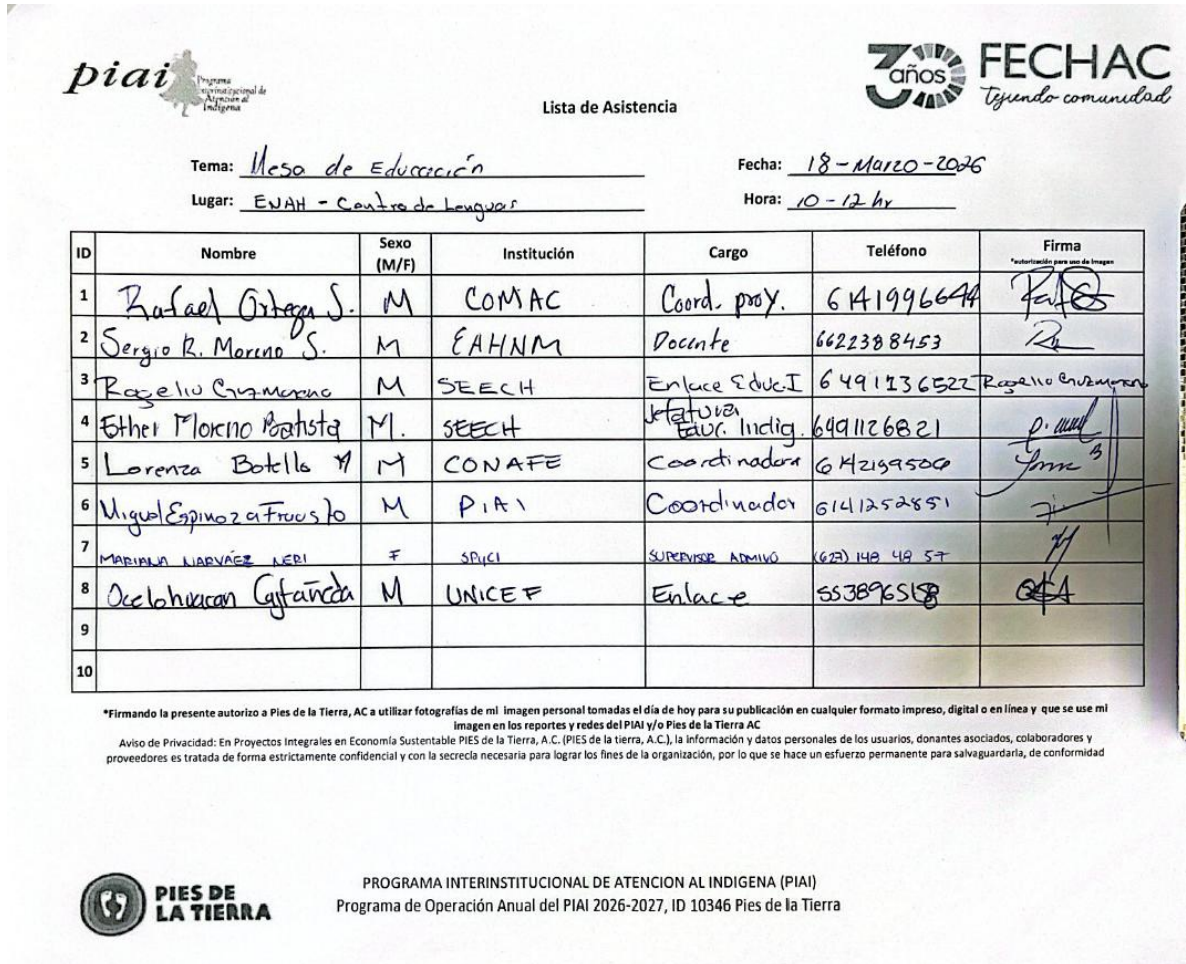 piai Programa Interinstitucional de Atención al Indígena
30 años FECHAC
Tejiendo comunidad
Lista de Asistencia
Tema: Mesa de Educación Fecha: 18-Marzo-2026
Lugar: ENAH - Centro de Lenguas Hora: 10-12 hr
ID Nombre Sexo (M/F) Institución Cargo Teléfono Firma *autorización para uso de imagen
1 Rafael Ortega S. M COMAC Coord. proy. 6141996644
2 Sergio R. Moreno S. M EAHNM Docente 6622388453
3 Rogelio Cruz Moreno M SEECH Enlace Educ. I 6491136522 Rogelio Cruz Moreno
4 Esther Moreno Batista M. SEECH Jefatura Educ. Indig. 6491126821
5 Lorenza Botello M CONAFE Coordinadora
6 Miguel Espinoza Frausto M PIAI Coordinador 6141252851
7 MARIANA NARVÁEZ NERI F SPyCI SUPERVISOR ADMIVO (627) 148 48 57
8 Ocelohuacan Castañeda M UNICEF Enlace
9
10
*Firmando la presente autorizo a Pies de la Tierra, AC a utilizar fotografías de mi imagen personal tomadas el día de hoy para su publicación en cualquier formato impreso, digital o en línea y que se use mi
imagen en los reportes y redes del PIAI y/o Pies de la Tierra AC
Aviso de Privacidad: En Proyectos Integrales en Economía Sustentable PIES de la Tierra, A.C. (PIES de la tierra, A.C.), la información y datos personales de los usuarios, donantes asociados, colaboradores y
proveedores es tratada de forma estrictamente confidencial y con la secrecía necesaria para lograr los fines de la organización, por lo que se hace un esfuerzo permanente para salvaguardarla, de conformidad
PIES DE
LA TIERRA
PROGRAMA INTERINSTITUCIONAL DE ATENCION AL INDIGENA (PIAI)
Programa de Operación Anual del PIAI 2026-2027, ID 10346 Pies de la Tierra